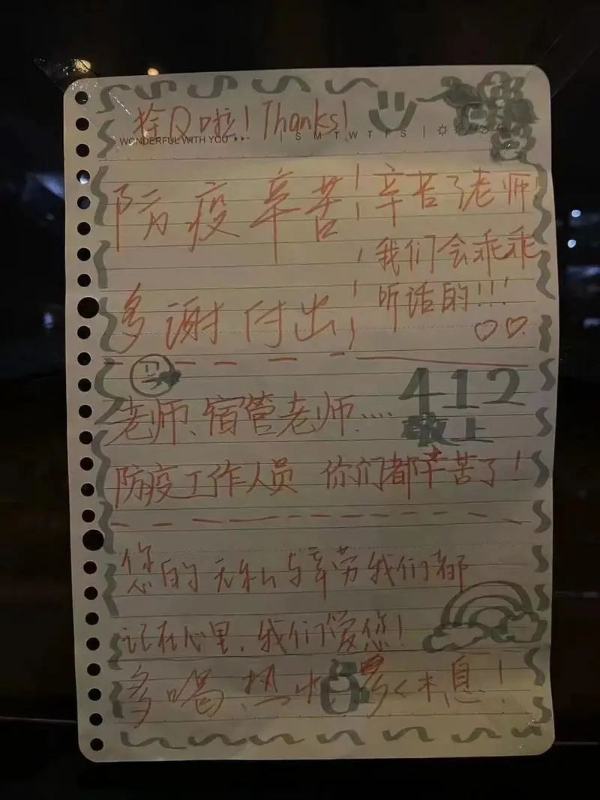 拴Q啦！Thanks!
WONDERFUL WITH YOU
S M T W T F S
防疫辛苦！
多谢付出！
辛苦了老师！
我们会乖乖
听话的!!!
412
敬上
老师、宿管老师.....
防疫工作人员 你们都辛苦了！
您的无私与辛劳我们都
记在心里，我们爱您！
多喝热水 多休息！